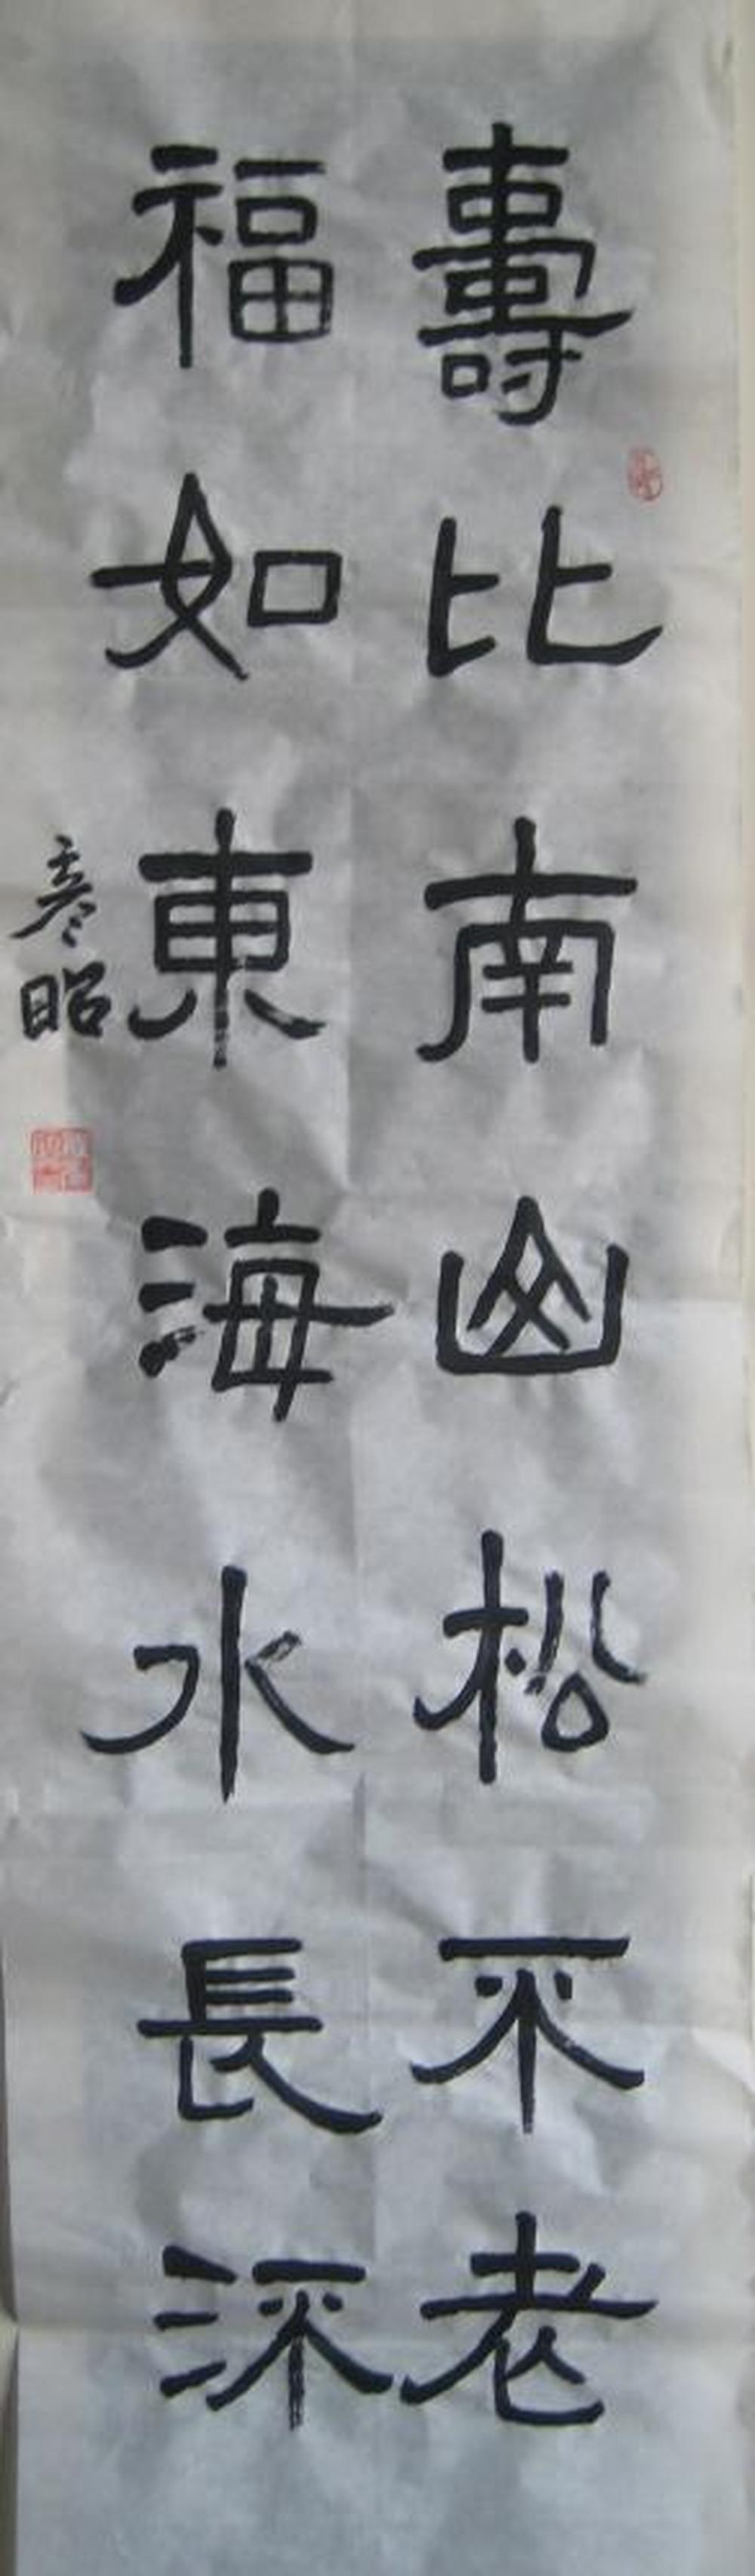 壽比南山松不老
福如東海水長流
彥昭